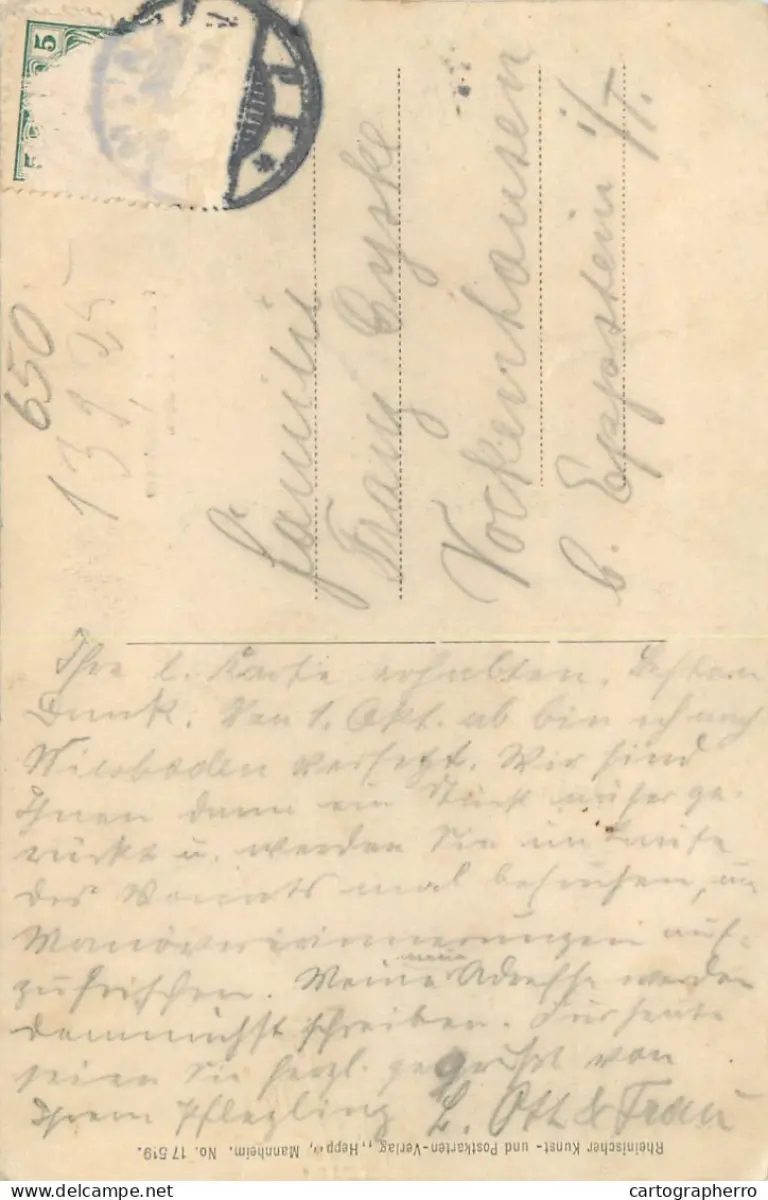 5
650
1 3 9 25
Familie
Franz Cyske
Vockenhausen
b. Eppstein i/T.
Ihre l. Karte erhalten. Besten
Dank. Von 1. Okt. ab bin ich nach
Wiesbaden versetzt. Wir sind
Ihnen dann ein Stück näher ge-
rückt u. werden Sie im Laufe
des Monats mal besuchen, um
Manövererinnerungen auf-
zufrischen. Meine neue Adresse werde
demnächst schreiben. Für heute
seien Sie herzl. gegrüßt von
Ihrem Pflegling L. Ott & Frau
Rheinischer Kunst- und Postkarten-Verlag „Hepp“, Mannheim. No. 17519.
© www.delcampe.net
cartographerro